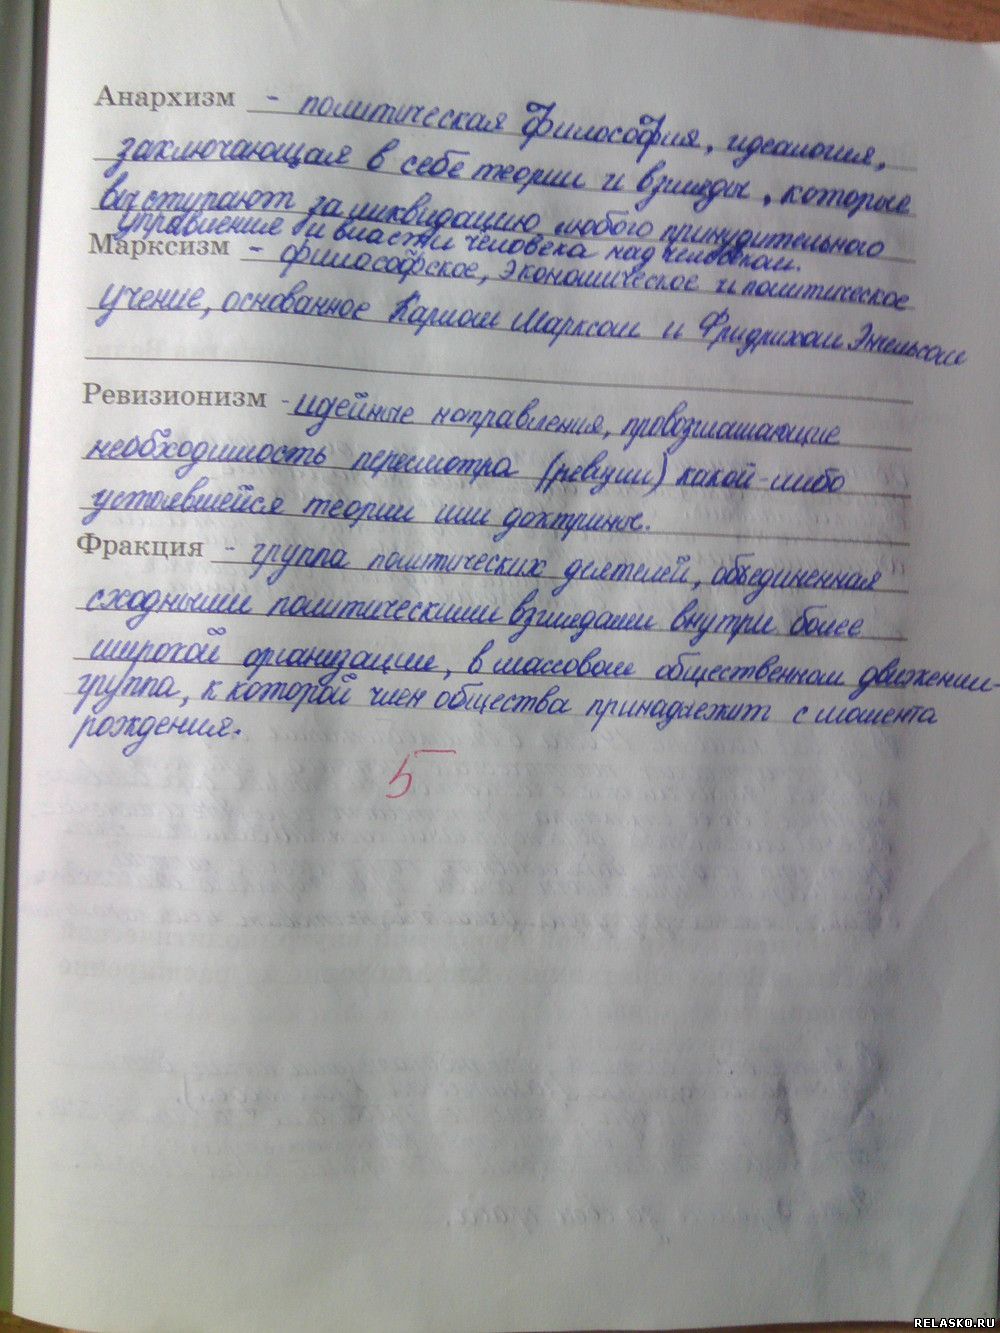 Анархизм - политическая философия, идеология,
заключающая в себе теории и взгляды, которые
выступают за ликвидацию любого принудительного
управления и власти человека над человеком.
Марксизм - философское, экономическое и политическое
учение, основанное Карлом Марксом и Фридрихом Энгельсом
Ревизионизм - идейные направления, провозглашающие
необходимость пересмотра (ревизии) какой-либо
устоявшейся теории или доктрины.
Фракция - группа политических деятелей, объединенная
сходными политическими взглядами внутри более
широкой организации, в массовом общественном движении-
группа, к которой член общества принадлежит с момента
рождения.
5
RELASKO.RU